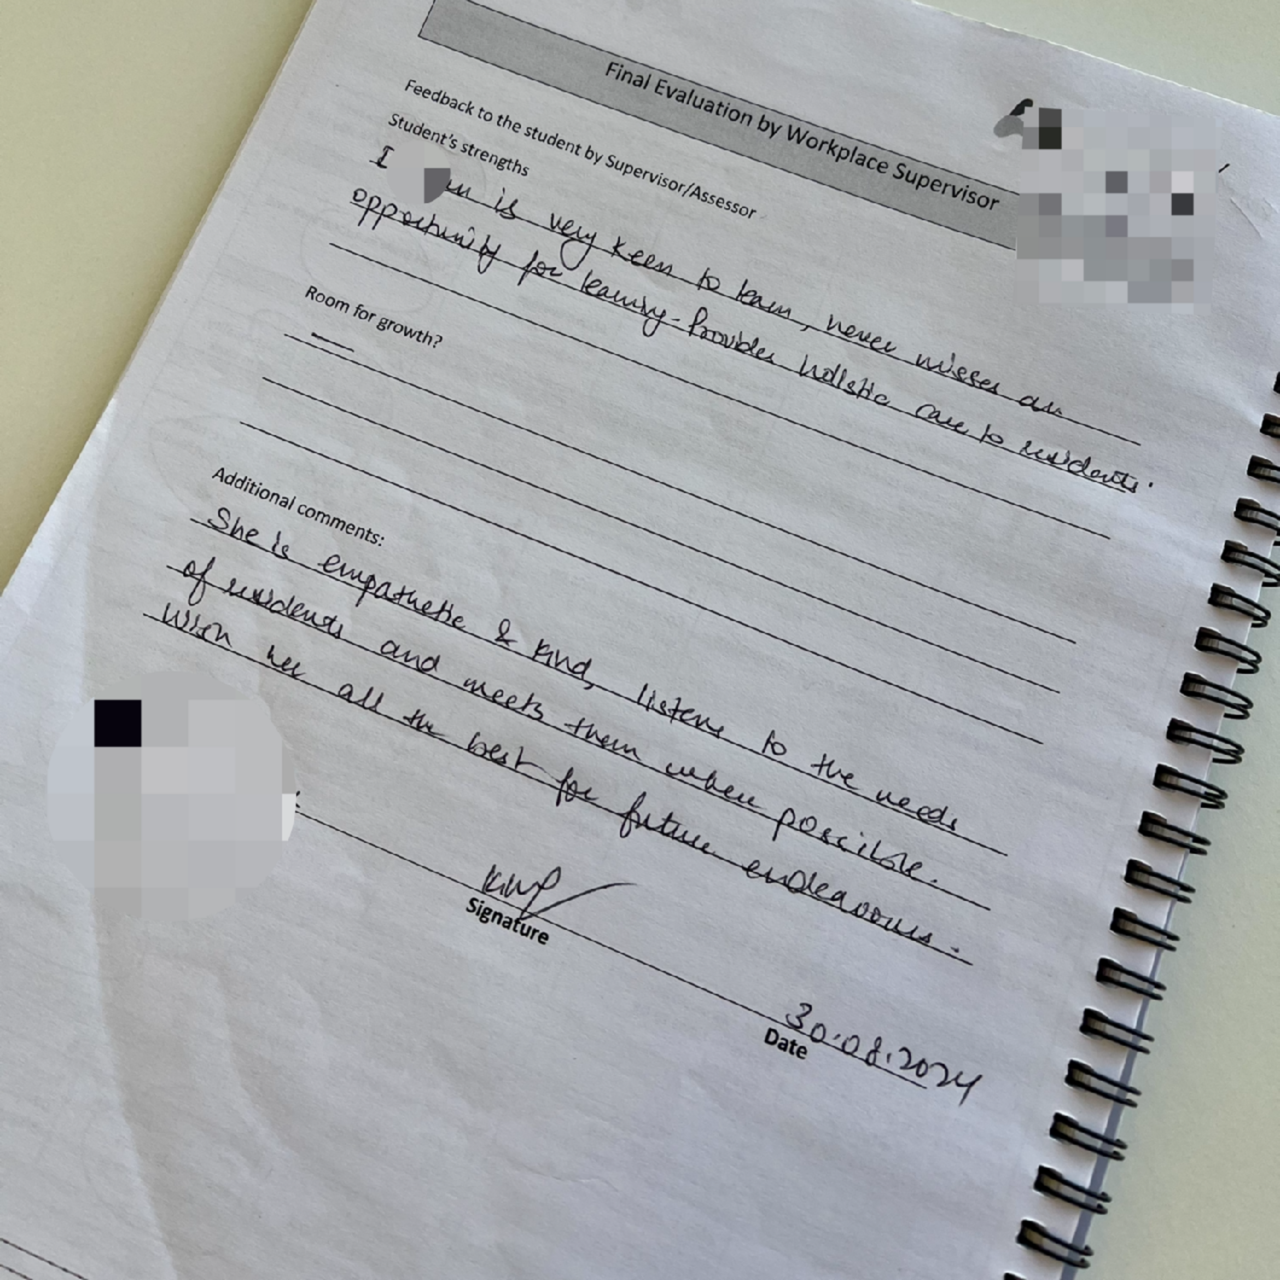 Final Evaluation by Workplace Supervisor
Feedback to the student by Supervisor/Assessor
Student's strengths
is very keen to learn, never misses an
opportunity for learning. Provides holistic care to residents.
Room for growth?
—
Additional comments:
She is empathetic & kind, listens to the needs
of residents and meets them when possible.
Wish her all the best for future endeavours.
Signature
30.08.2024
Date